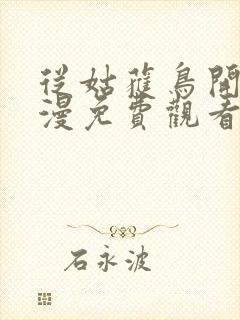 從姑蓷鳥開
漫免費觀看
石永波